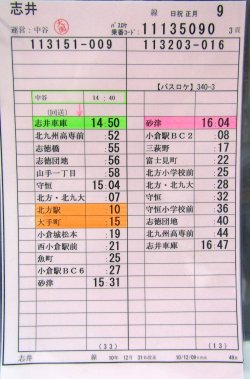 志井 線 日祝 正月 9
運営:中谷 バスロケ 乗番コード: 11135090 3頁
113151-009 113203-016
【バスロケ】340-3
中谷 14:40
(回送)
志井車庫 14:50
北九州高専前 :52
志徳橋 :55
志徳団地 :56
山手一丁目 :58
守恒 15:04
北方・北九大 :07
北方駅 :10
大手町 :15
小倉城松本 :19
西小倉駅前 :21
魚町 :25
小倉駅BC6 :27
砂津 15:31
(33)
砂津 16:04
小倉駅BC2 :08
三萩野 :17
富士見町 :22
北方小学校前 :25
北方・北九大 :28
守恒 :32
守恒小学校前 :36
志徳団地 :40
北九州高専前 :44
志井車庫 16:47
(13)
志井 線 10年 12月 31日改正 10/12/09